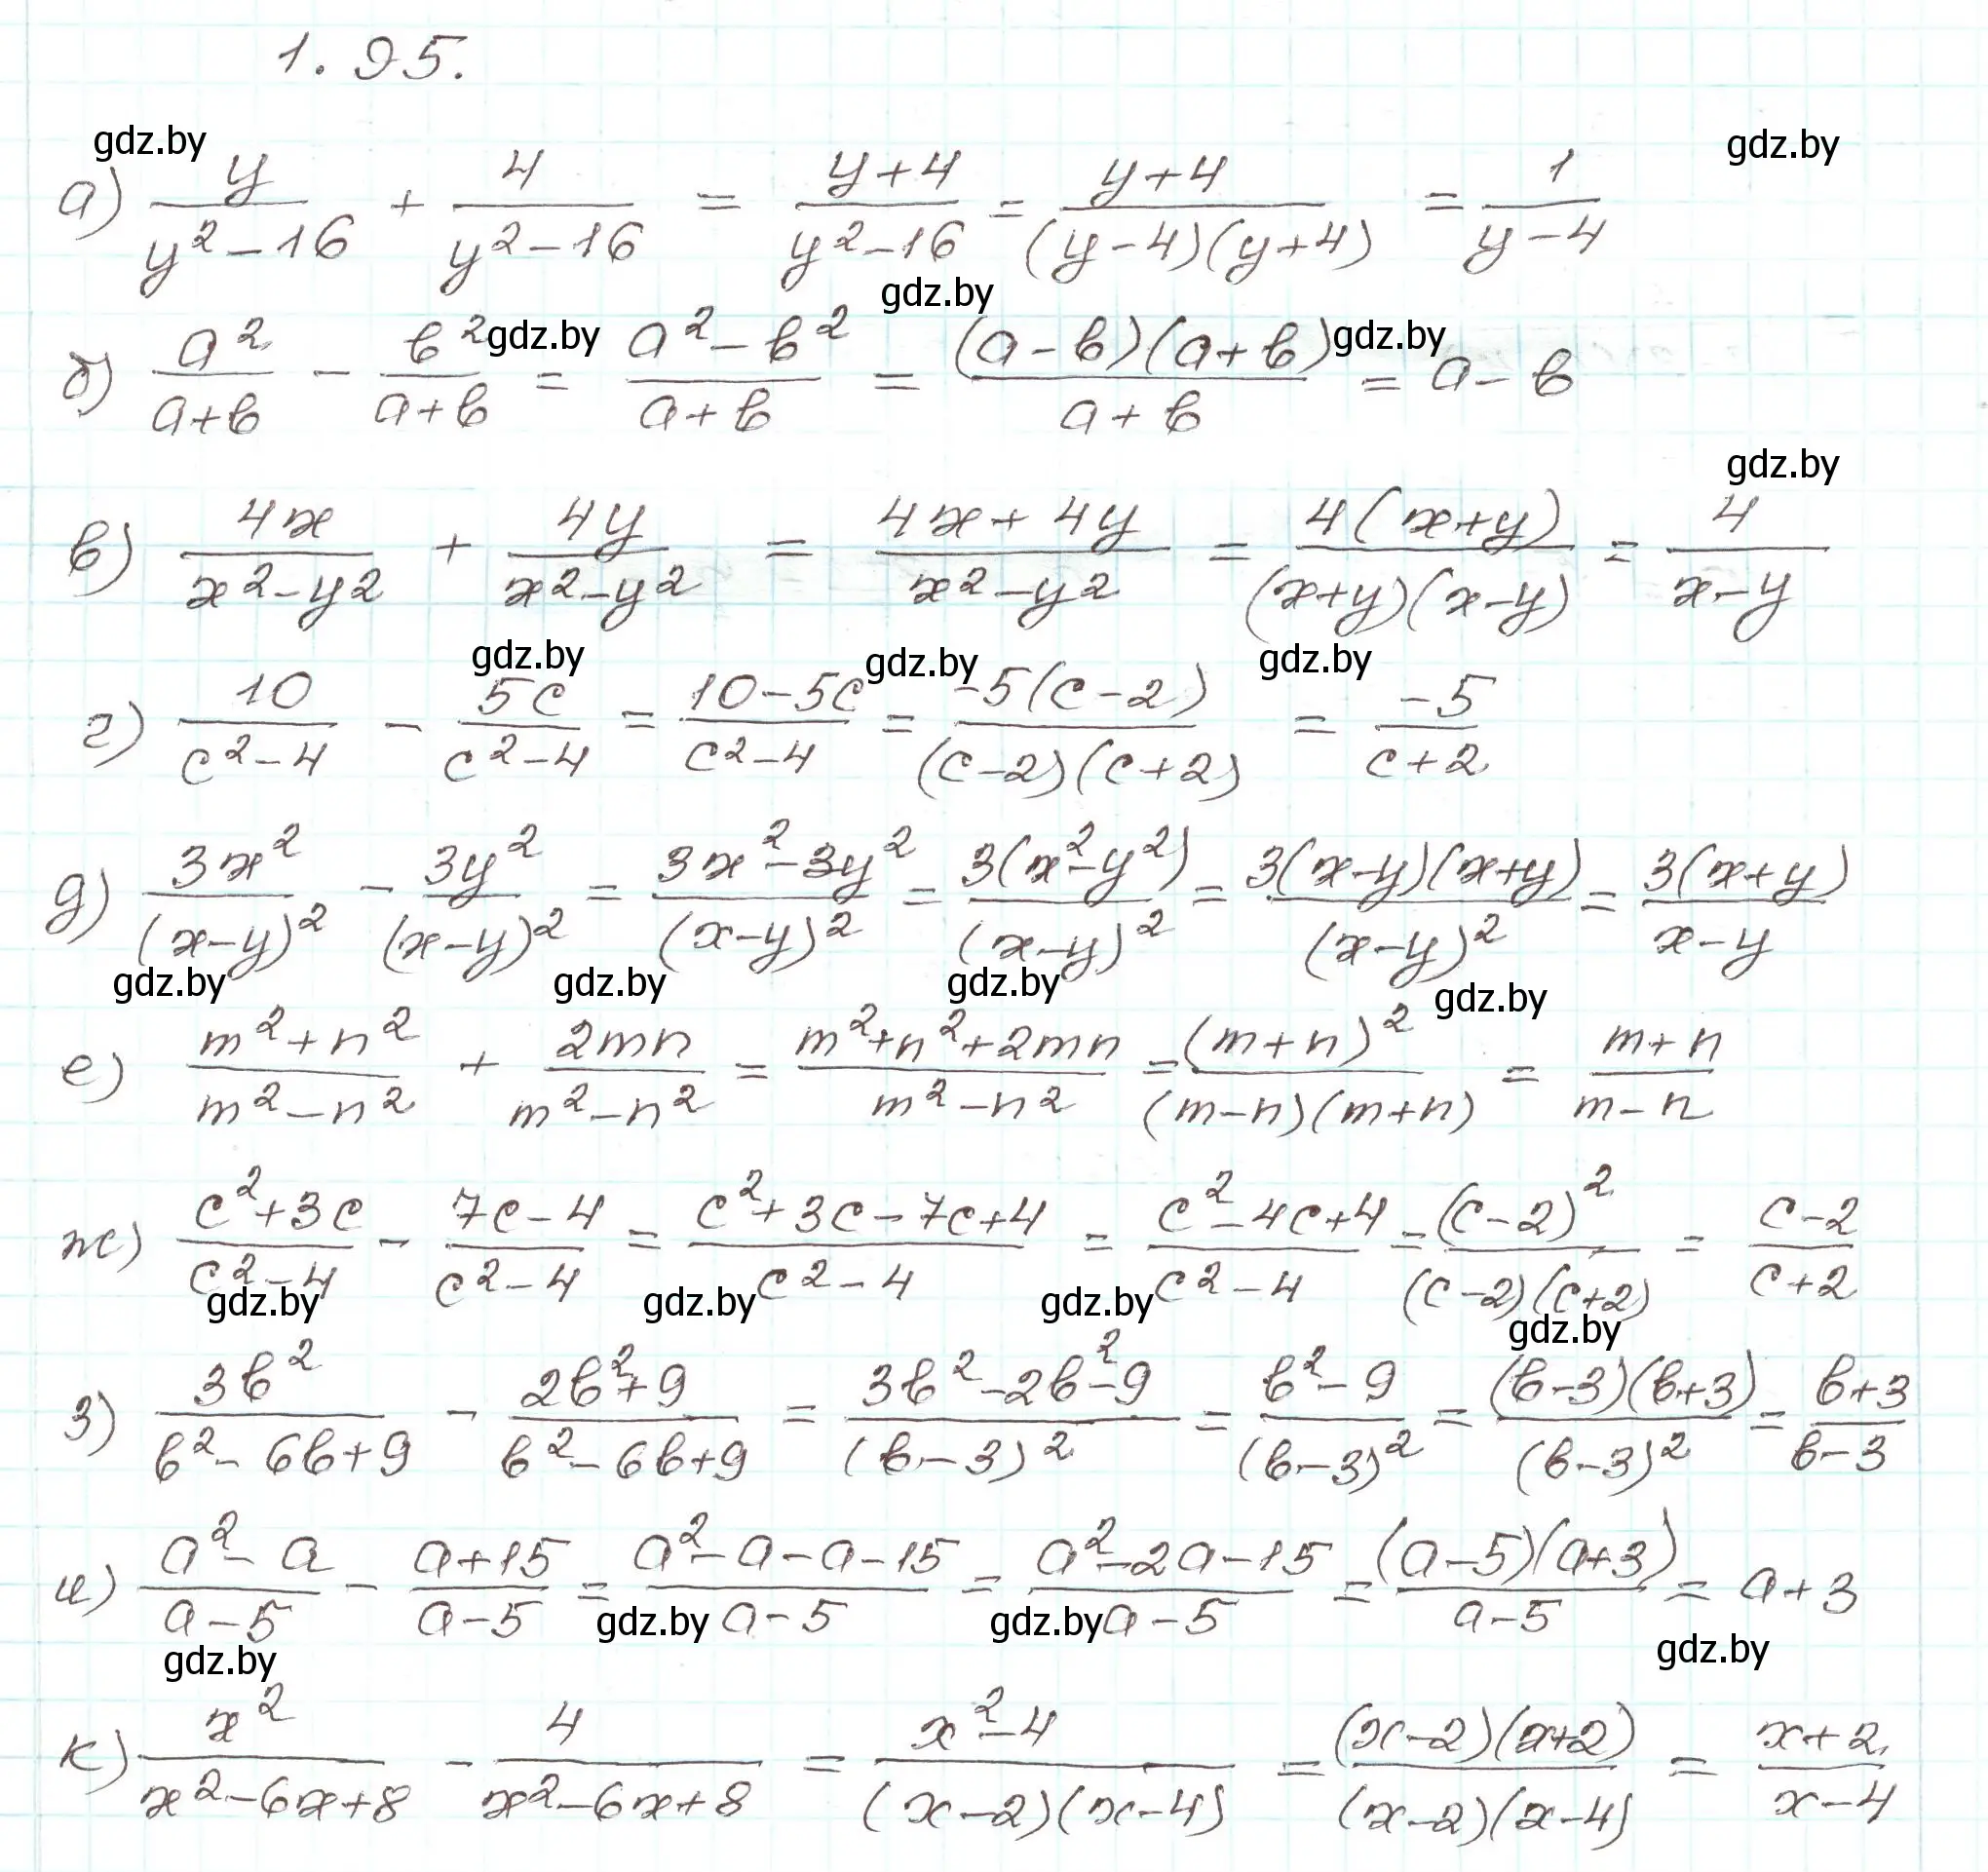 1.95.
gdz.by gdz.by
а) y/(y²-16) + 4/(y²-16) = (y+4)/(y²-16) = (y+4)/((y-4)(y+4)) = 1/(y-4)
gdz.by
б) a²/(a+b) - b²/(a+b) = (a²-b²)/(a+b) = ((a-b)(a+b))/(a+b) = a-b
gdz.by gdz.by
gdz.by
в) 4x/(x²-y²) + 4y/(x²-y²) = (4x+4y)/(x²-y²) = (4(x+y))/((x+y)(x-y)) = 4/(x-y)
gdz.by gdz.by gdz.by
г) 10/(c²-4) - 5c/(c²-4) = (10-5c)/(c²-4) = (-5(c-2))/((c-2)(c+2)) = -5/(c+2)
д) 3x²/(x-y)² - 3y²/(x-y)² = (3x²-3y²)/(x-y)² = (3(x²-y²))/(x-y)² = (3(x-y)(x+y))/(x-y)² = (3(x+y))/(x-y)
gdz.by gdz.by gdz.by gdz.by
е) (m²+n²)/(m²-n²) + 2mn/(m²-n²) = (m²+n²+2mn)/(m²-n²) = (m+n)²/((m-n)(m+n)) = (m+n)/(m-n)
ж) (c²+3c)/(c²-4) - (7c-4)/(c²-4) = (c²+3c-7c+4)/(c²-4) = (c²-4c+4)/(c²-4) = (c-2)²/((c-2)(c+2)) = (c-2)/(c+2)
gdz.by gdz.by gdz.by gdz.by
з) 3b²/(b²-6b+9) - (2b²+9)/(b²-6b+9) = (3b²-2b²-9)/(b-3)² = (b²-9)/(b-3)² = ((b-3)(b+3))/(b-3)² = (b+3)/(b-3)
и) (a²-a)/(a-5) - (a+15)/(a-5) = (a²-a-a-15)/(a-5) = (a²-2a-15)/(a-5) = ((a-5)(a+3))/(a-5) = a+3
gdz.by gdz.by gdz.by gdz.by
к) x²/(x²-6x+8) - 4/(x²-6x+8) = (x²-4)/((x-2)(x-4)) = ((x-2)(x+2))/((x-2)(x-4)) = (x+2)/(x-4)